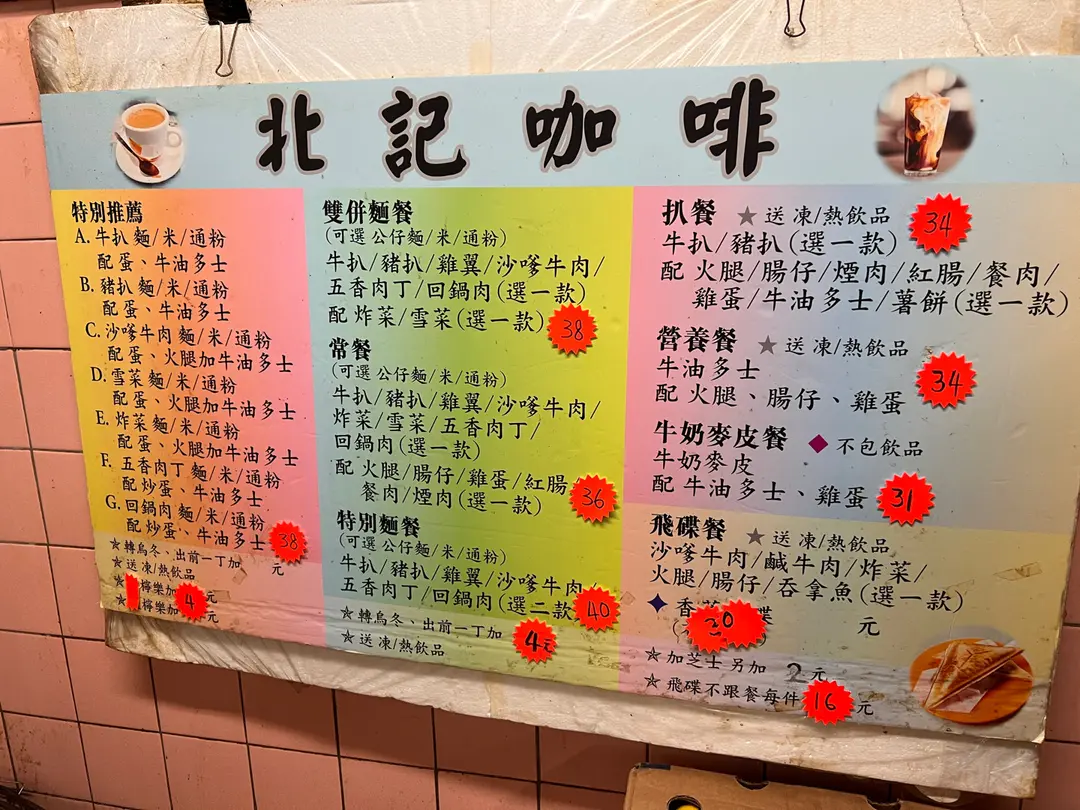 北記咖啡
特別推薦
A. 牛扒 麵/米/通粉
配蛋、牛油多士
B. 豬扒 麵/米/通粉
配蛋、牛油多士
C. 沙嗲牛肉 麵/米/通粉
配蛋、火腿加牛油多士
D. 雪菜 麵/米/通粉
配蛋、火腿加牛油多士
E. 炸菜 麵/米/通粉
配蛋、火腿加牛油多士
F. 五香肉丁 麵/米/通粉
配炒蛋、牛油多士
G. 回鍋肉 麵/米/通粉
配炒蛋、牛油多士 38
☆轉烏冬、出前一丁加 元
☆送凍/熱飲品
☆檸樂加 元
☆檸樂加 4 元
雙併麵餐
(可選 公仔麵/米/通粉)
牛扒/豬扒/雞翼/沙嗲牛肉/
五香肉丁/回鍋肉(選一款)
配 炸菜/雪菜(選一款) 38
常餐
(可選 公仔麵/米/通粉)
牛扒/豬扒/雞翼/沙嗲牛肉/
炸菜/雪菜/五香肉丁/
回鍋肉(選一款)
配 火腿/腸仔/雞蛋/紅腸
餐肉/煙肉(選一款) 36
特別麵餐
(可選 公仔麵/米/通粉)
牛扒/豬扒/雞翼/沙嗲牛肉/
五香肉丁/回鍋肉(選二款 40
☆轉烏冬、出前一丁加 4 元
☆送 凍/熱飲品
扒餐 ★ 送 凍/熱飲品 34
牛扒/豬扒(選一款)
配 火腿/腸仔/煙肉/紅腸/餐肉/
雞蛋/牛油多士/薯餅(選一款)
營養餐 ★ 送 凍/熱飲品
牛油多士 34
配 火腿、腸仔、雞蛋
牛奶麥皮餐 ◆ 不包飲品
牛奶麥皮
配 牛油多士、雞蛋 31
飛碟餐 ★ 送 凍/熱飲品
沙嗲牛肉/鹹牛肉/炸菜/
火腿/腸仔/吞拿魚(選一款)
✦ 香 碟 30 元
☆ 加芝士 另加 2 元
☆ 飛碟不跟餐每件 16 元